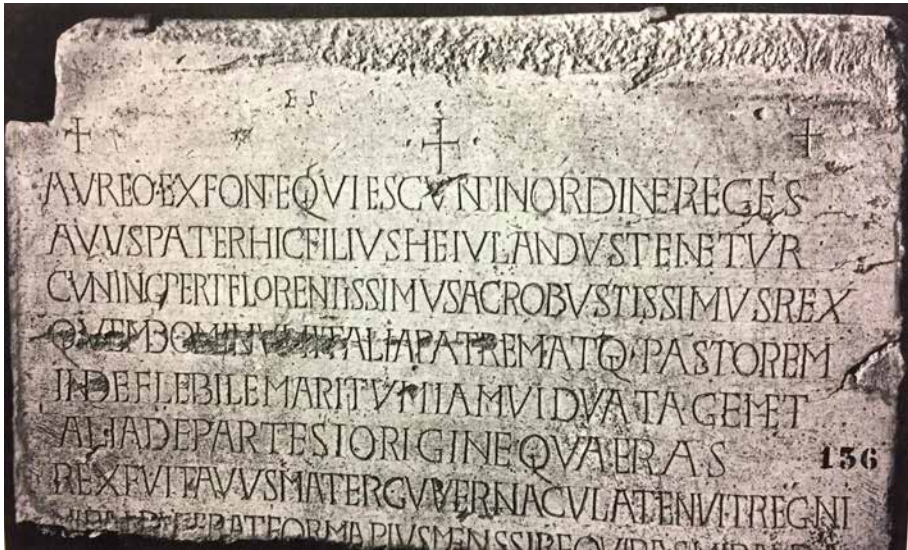 AVREO·EXFONTEQVIESCVNTINORDINEREGES
AVVSPATERHICFILIVSHEIVLANDVSTENETVR
CVNINGPERTFLORENTISSIMVSACROBVSTISSIMVSREX
QVEMDOMINVMITALIAPATREMATQ·PASTOREM
INDEFLEBILEMARITVMIIAMVIDVATAGEMET
ALIADEPARTESIORIGINEQVAERAS
136
REXFVITAVVSMATERGVVERNACVLATENVITREGNI